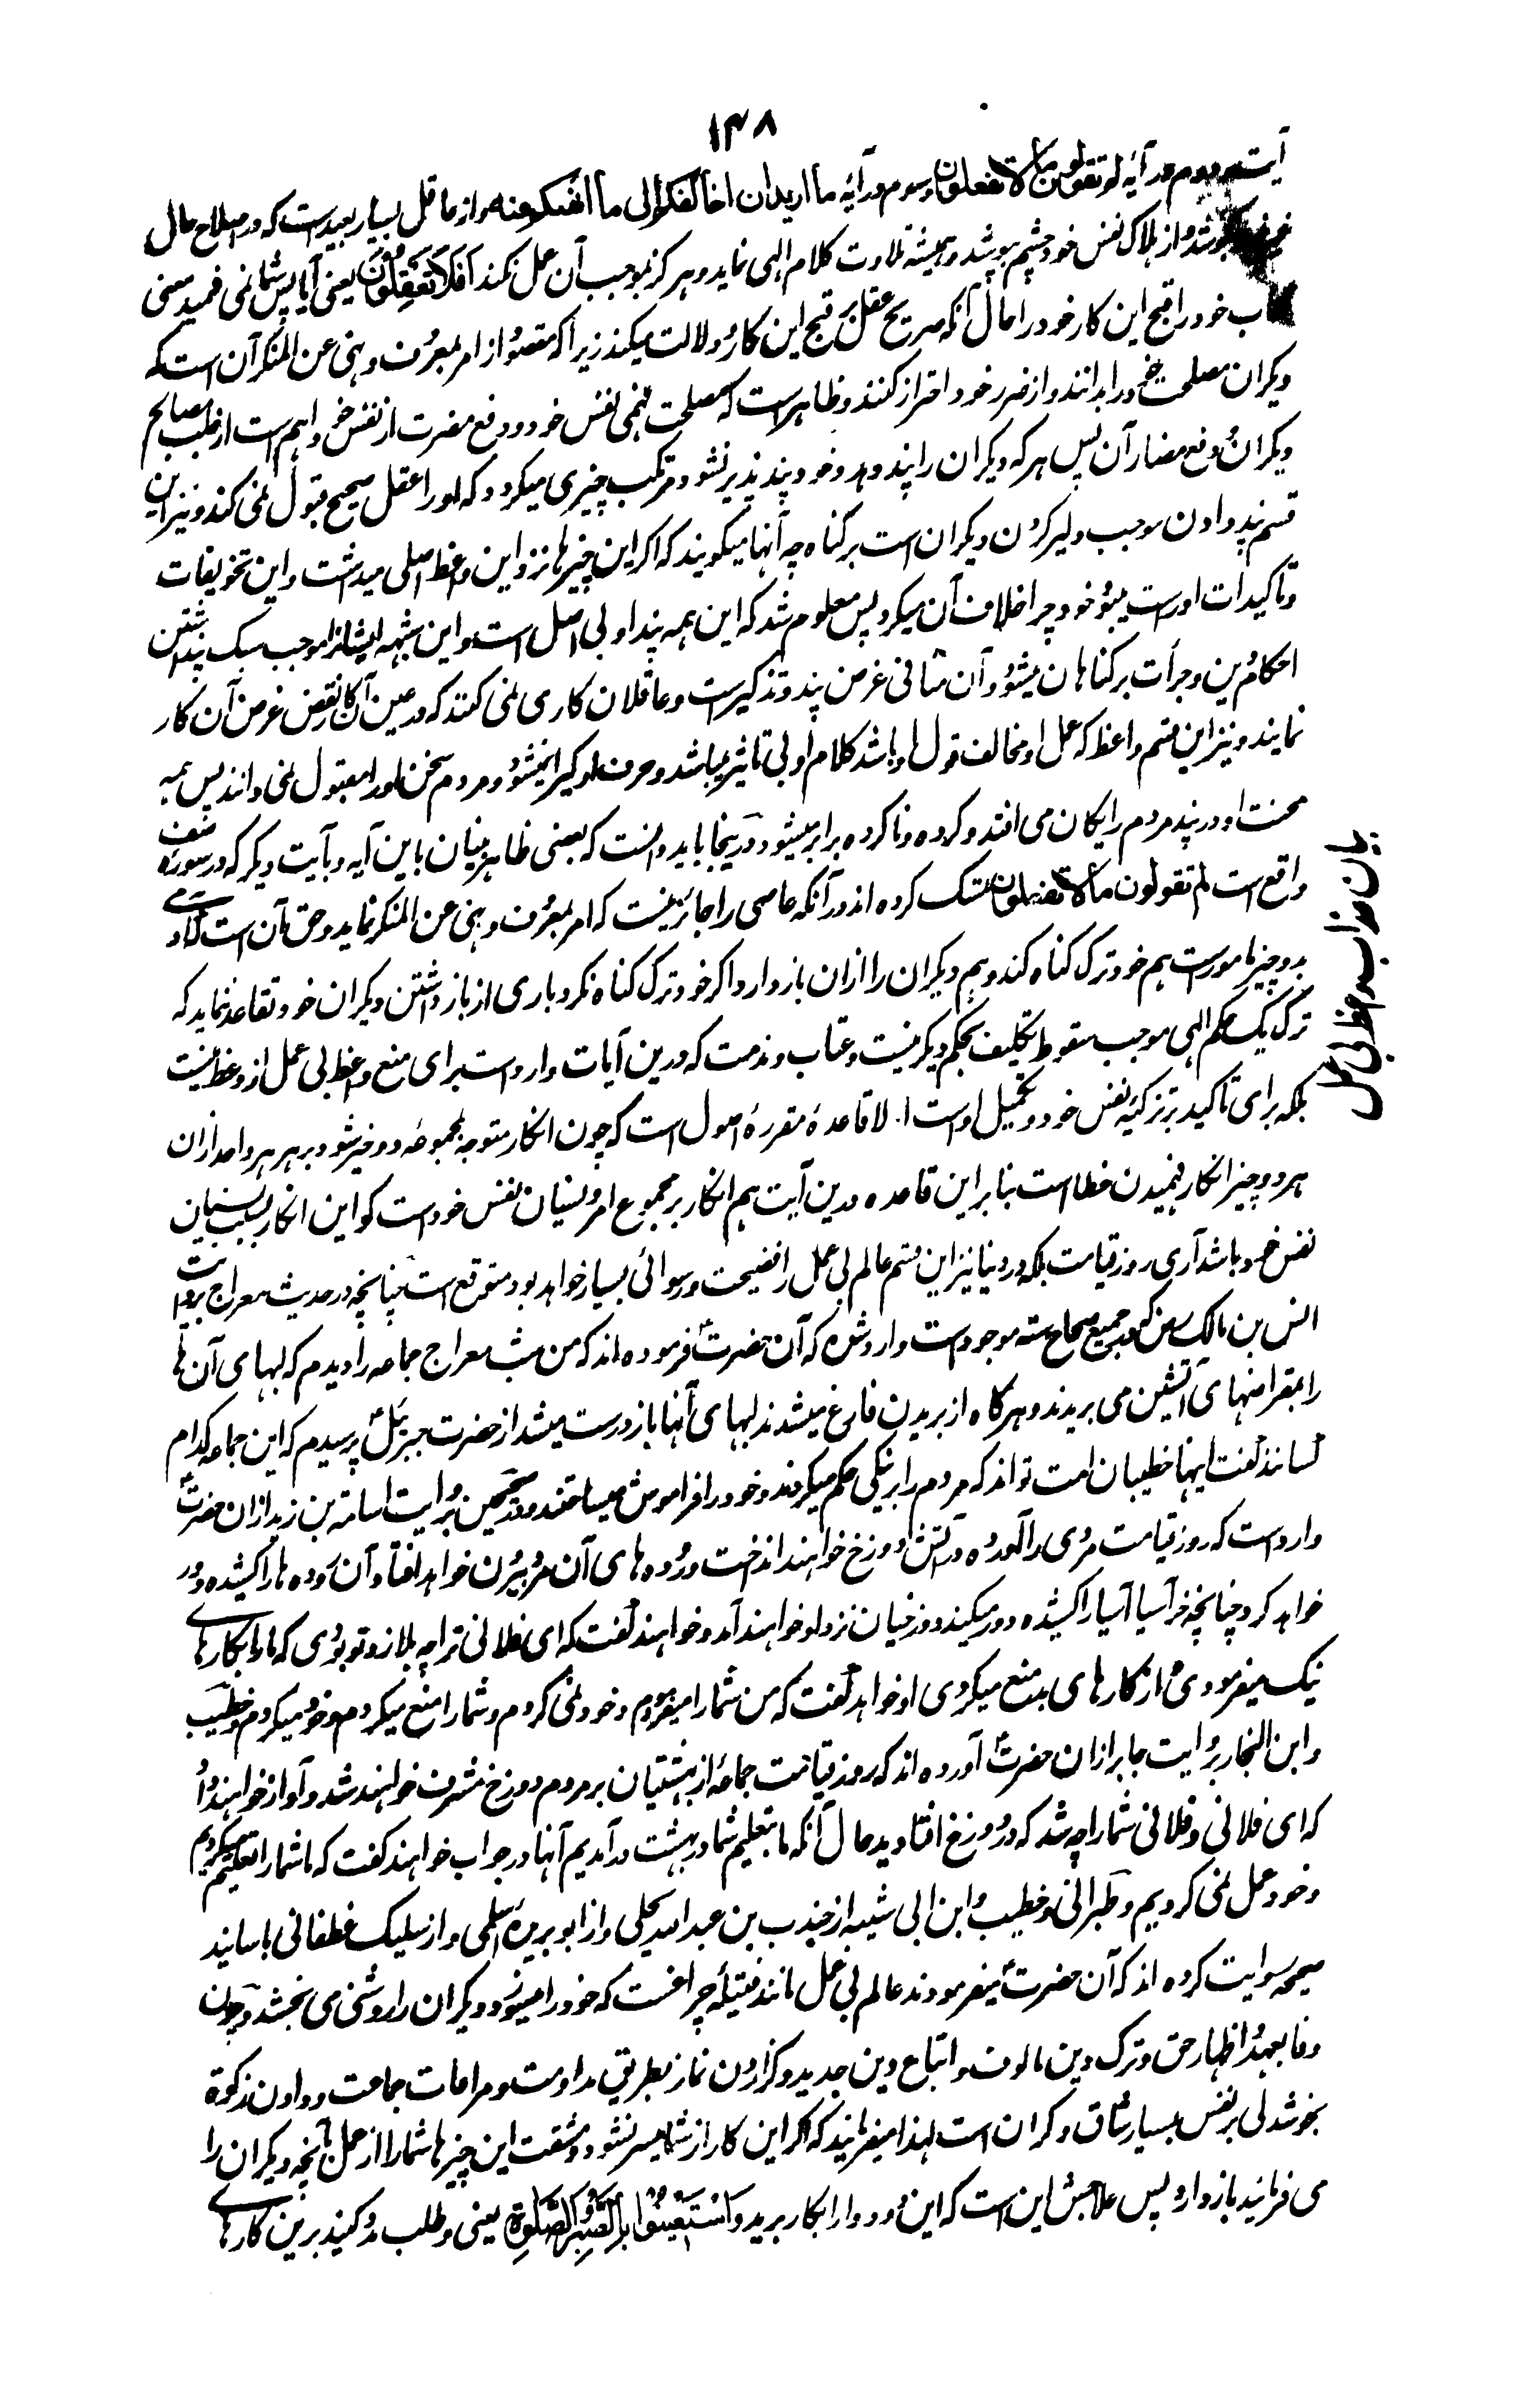 ۱۴۸
آیت دوم در آیۀ لم تقولون ما لا تفعلون و سوم در آیۀ ما ارید ان اخالفکم الی ما انهکم عنه و از عاقل بسیار بعید است که در اصلاح حال
کوشد و از هلاک نفس خود چشم بپوشد و همیشه تلاوت کلام الهی نماید و هرگز بموجب آن عمل نکند اَفَلَا تَعقِلُونَ یعنی آیا پس شما نمی فهمید معنی
کتاب خود را قبح این کار خود را حال آنکه صریح عقل بر قبح این کار دلالت میکند زیرا که مقصود از امر بمعروف و نهی عن المنکر آن است که
دیگران مصلحت خود را بدانند و از ضرر خود احتراز کنند و ظاهر است که مصلحت فهمی نفس خود و دفع مضرت از نفس خود اهم است از طلب مصالح
دیگران و دفع مضار آن پس هر که دیگران را پند دهد و خود پند پذیر نشود مرتکب چیزی میگردد که او را عقل صحیح قبول نمی کند و نیز این
قسم پند دادن موجب دلیر کردن دیگران است بر گناه چه آنها میگویند که اگر این چیزها نزد این واعظ اصلی میداشت و این تخویفات
و تاکیدات او راست میبود خود چرا خلاف آن میکرد پس معلوم شد که این همه پند او بی اصل است و این شبهه ایشانرا موجب سبک پنداشتن
احکام دین و جرأت بر گناهان میشود و آن منافی غرض پند و تذکیر است و عاقلان کاری نمی کنند که در عین آن کار نقض غرض آن کار
نمایند و نیز این قسم واعظ که عمل او مخالف قول او باشد کلام او بی تاثیر میباشد و حرف او گیرا نمیشود و مردم سخن او را مقبول نمی دانند پس همه
محنت او در پند مردم رایگان می افتد و کرده و ناکرده برابر میشود و درینجا باید دانست که بعضی ظاهر بینان باین آیه و بآیت دیگر که در سورۀ صف
واقع است لم تقولون ما لا تفعلون تمسک کرده اند در آنکه عاصی را جائز نیست که امر بمعروف و نهی عن المنکر نماید و حق آن است که آدمی
بدو چیز مامور است هم خود ترک گناه کند و هم دیگران را ازان باز دارد اگر خود ترک گناه نکرد باری از باز داشتن دیگران خود تقاعد ننماید که
ترک یک حکم الهی موجب سقوط تکلیف بحکم دیگر نیست و عتاب و مذمت که درین آیات وارد است برای منع واعظ بی عمل از وعظ نیست
بلکه برای تاکید بر تزکیۀ نفس خود و تکمیل اوست لا قاعدۀ مقررۀ اصول است که چون انکار متوجه مجموعۀ دو چیز شود بر هر هر واحد ازان
هر دو چیز انکار فهمیدن خطا است بنا بر این قاعده درین آیت هم انکار بر مجموع امر و نسیان نفس خود است گو این انکار بسبب نسیان
نفس خود باشد آری روز قیامت بلکه در دنیا نیز این قسم عالم بی عمل را فضیحت و رسوائی بسیار خواهد بود متوقع است چنانچه در حدیث معراج بروایت
انس بن مالک رض که در جمیع صحاح سته موجود است وارد شده که آن حضرت ص فرموده اند که من شب معراج جماعه را دیدم که لبهای آن ها
را بمقراضهای آتشین می بریدند و هرگاه از بریدن فارغ میشدند لبهای آنها باز درست میشد از حضرت جبرئیل پرسیدم که این جماعه کدام
کسانند گفت اینها خطیبان امت تو اند که مردم را بر نیکی حکم میکردند و خود را فراموش میساختند و در صحیحین بروایت اسامة بن زید ازان حضرت ص
وارد است که روز قیامت مردی را آورده در آتش دوزخ خواهند انداخت و روده های آن مرد بیرون خواهد افتاد و آن روده ها را کشیده دور
خواهد کرد چنانچه خر آسیا آسیا را کشیده دور میکند دوزخیان نزد او خواهند آمد و خواهند گفت که ای فلانی ترا چه بلا زد تو بودی که ما را بکارهای
نیک میفرمودی و از کارهای بد منع میکردی او خواهد گفت که من شما را میفرمودم و خود نمی کردم و شما را منع میکردم و خود میکردم و خطیب
و ابن النجار بروایت جابر ازان حضرت ص آورده اند که روز قیامت جماعۀ از بهشتیان بر مردم دوزخ مشرف خواهند شد و آواز خواهند داد
که ای فلانی و فلانی شما را چه شد که در دوزخ افتادید حال آنکه ما بتعلیم شما در بهشت در آمدیم آنها در جواب خواهند گفت که ما شما را تعلیم میکردیم
و خود عمل نمی کردیم و طبرانی و خطیب و ابن ابی شیبه از جندب بن عبد الله بجلی و از ابو برزۀ اسلمی و از سلیک غطفانی باسانید
صحیحه روایت کرده اند که آن حضرت ص میفرمودند عالم بی عمل مانند فتیلۀ چراغ است که خود را میسوزد و دیگران را روشنی می بخشد و چون
وفا بعهد و اظهار حق و ترک دین مالوف و اتباع دین جدید و گزاردن نماز بطریق مداومت و مراعات جماعت و دادن زکوة
بخوشدلی بر نفس بسیار شاق و گران است لهذا میفرمایند که اگر این کار از شما میسر نشود و مشقت این چیزها شما را از عمل بآنچه دیگران را
می فرمائید باز دارد پس علاجش این است که این دو دوا را بکار برید وَاستَعِینُوا بِالصَّبرِ وَالصَّلٰوةِ یعنی و طلب مدد کنید برین کارهای
بیان عذاب واعظ بی عمل